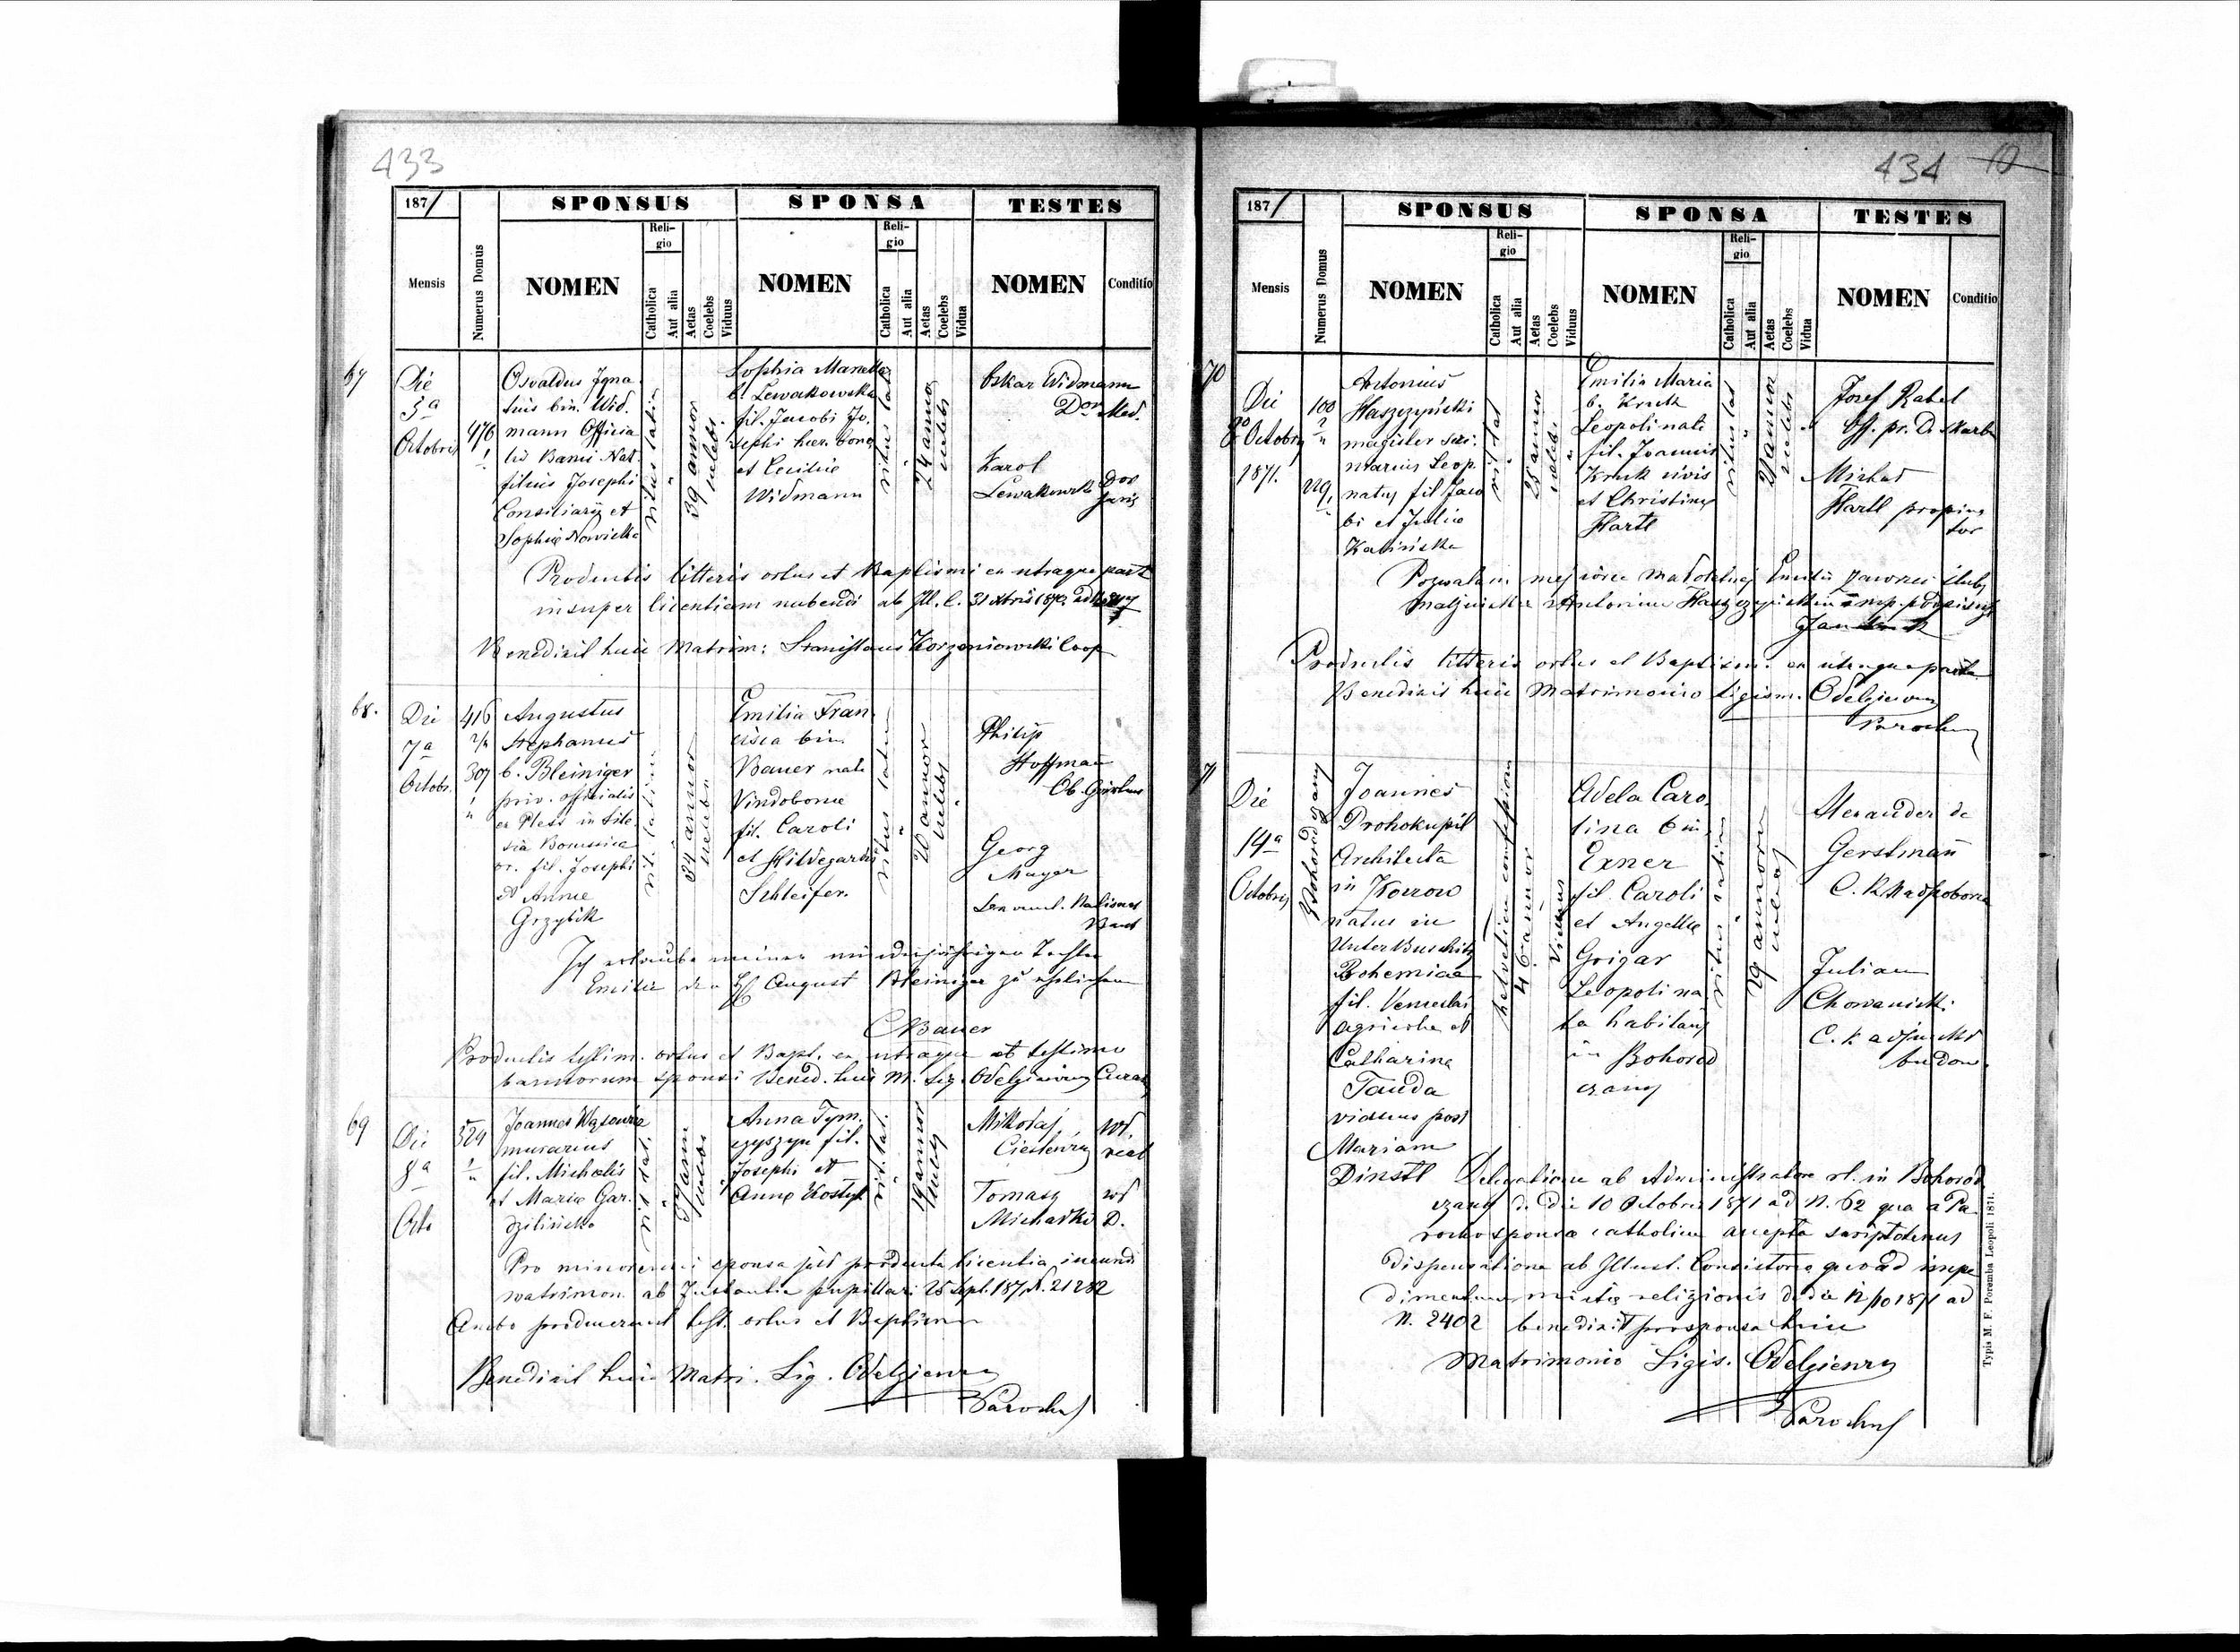 433
187/
SPONSUS
SPONSA
TESTES
Mensis
Numerus Domus
NOMEN
Religio
Catholica
Aut alia
Aetas
Coelebs
Viduus
NOMEN
Religio
Catholica
Aut alia
Aetas
Coelebs
Vidua
NOMEN
Conditio
67
Die
5a
Octobris
476
Osvaldus Igna
tius bin. Wid.
mann Officia
lis Banci Nat.
filius Josephi
Consiliarii et
Sophiæ Nowicka
ritus latin
39 annor
celebs.
Sophia
b. Lewakowska
fil. Jacobi Jo.
sephi hær. bono
et Ceciliæ
Widmann
ritus lat
24 annor
celebs
Oskar Widmann
Dor Med.
Karol
Lewakowski
Dor
Juris
Productis litteris ortus et Baptismi ex utraque parte
insuper licentiam nubendi ab Ill. C. 31
Benedixit huic Matrim: Stanislaus Korzeniowski Coop
68.
Die
7a
Octobr.
416
2/4
307
Augustus
Stephanus
b. Bleiniger
priv. officialis
ex Pless in Sile
sia Borussica
or. fil. Josephi
et Annæ
Grzybik
rit. latin
34 annor
celebs
Emilia Fran
cisca bin.
Bauer nata
Vindobonæ
fil. Caroli
et Hildegardis
Schleifer.
ritus latin
20 annor
celebs
Philip
Hoffman
Georg
Mayer
Ich erlaube meiner minderjährigen Tochter
Emilie den H August Bleiniger zu ehelichen
CBauer
Productis testim. ortus et Bapt. ex utraque et testimo
bannorum sponsi Bened. huic M. Sig. Odelgiewicz Curat
69
Die
8a
Octo
524
Joannes Wąsowicz
murarius
fil. Michælis
et Mariæ Gar.
dzilińska
rit lat.
37 ann
celebs
Anna Tym.
czyszyn fil.
Josephi et
Annæ Kostyk
rit. lat.
19 annor
celebs
Mikołaj
Cieślewicz
wł.
real
Tomasz
Michałko
wł
D.
Pro minorenni sponsa fuit producta licentia ineundi
matrimon. ab Instantia pupillari 25 Sept. 187 N. 21282
Ambo produxerunt test. ortus et Baptismi
Benedixit huic Matri. Sig. Odelgiewicz
Parochus
434
10
187/
SPONSUS
SPONSA
TESTES
Mensis
Numerus Domus
NOMEN
Religio
Catholica
Aut alia
Aetas
Coelebs
Viduus
NOMEN
Religio
Catholica
Aut alia
Aetas
Coelebs
Vidua
NOMEN
Conditio
70
Die
8a Octobris
1871.
100
2
229
Antonius
Haszczyński
magister
narius Leop.
natus fil Jaco
bi et Juliæ
Kalińska
rit lat
25 annor
celebs
Emilia Maria
b. Kruk
Leopoli nata
fil. Joannis
Kruk civis
et Christinæ
Hartl
ritus lat
21 annor
celebs
Josef Rabel
Off. pr. D. Skarbu
Michał
Hartl propina
tor
Pozwalam mej córce małoletniej Emilii zawrzeć śluby
małżeńskie z Antonim Haszczyńskim
Jan Kruk
Productis litteris ortus et Baptism. ex utraque parte
Benedixit huic Matrimonio Sigism. Odelgiewicz
Parochus
71
Die
14a
Octobris
Bohorodczany
Joannes
Prohokupil
Architecta
in
natus in
Unter Buschitz
Bohemiae
fil. Venceslai
agricolæ et
Catharina
Tauda
viduus post
Mariam
Dinstl
helveticæ confessionis
46 annor
Viduus
Adela Caro
lina bin
Exner
fil Caroli
et Angelæ
Grigar
Leopoli na
ta habitans
in Bohorod
czany
ritus latin
29 annorum
celebs
Alexander de
Gerstmann
C. K. Nadpoborca
Julian
Chowaniecki
C. k. adjunkt
budow.
Delegatione ab Administratore rl. in Bohorod
czany d. die 10 Octobris 1871 ad N. 62 qua a Pa
rocho sponsæ catholicæ accepta scriptotenus
dispensatione ab Illust. Consistorio quoad impe
dimentum mixtæ religionis d. die 12/10 1871 ad
N. 2402 benedixit pro sponsa huic
Matrimonio Sigis. Odelgiewicz
Parochus
Typis M. F. Poremba Leopoli 1871.